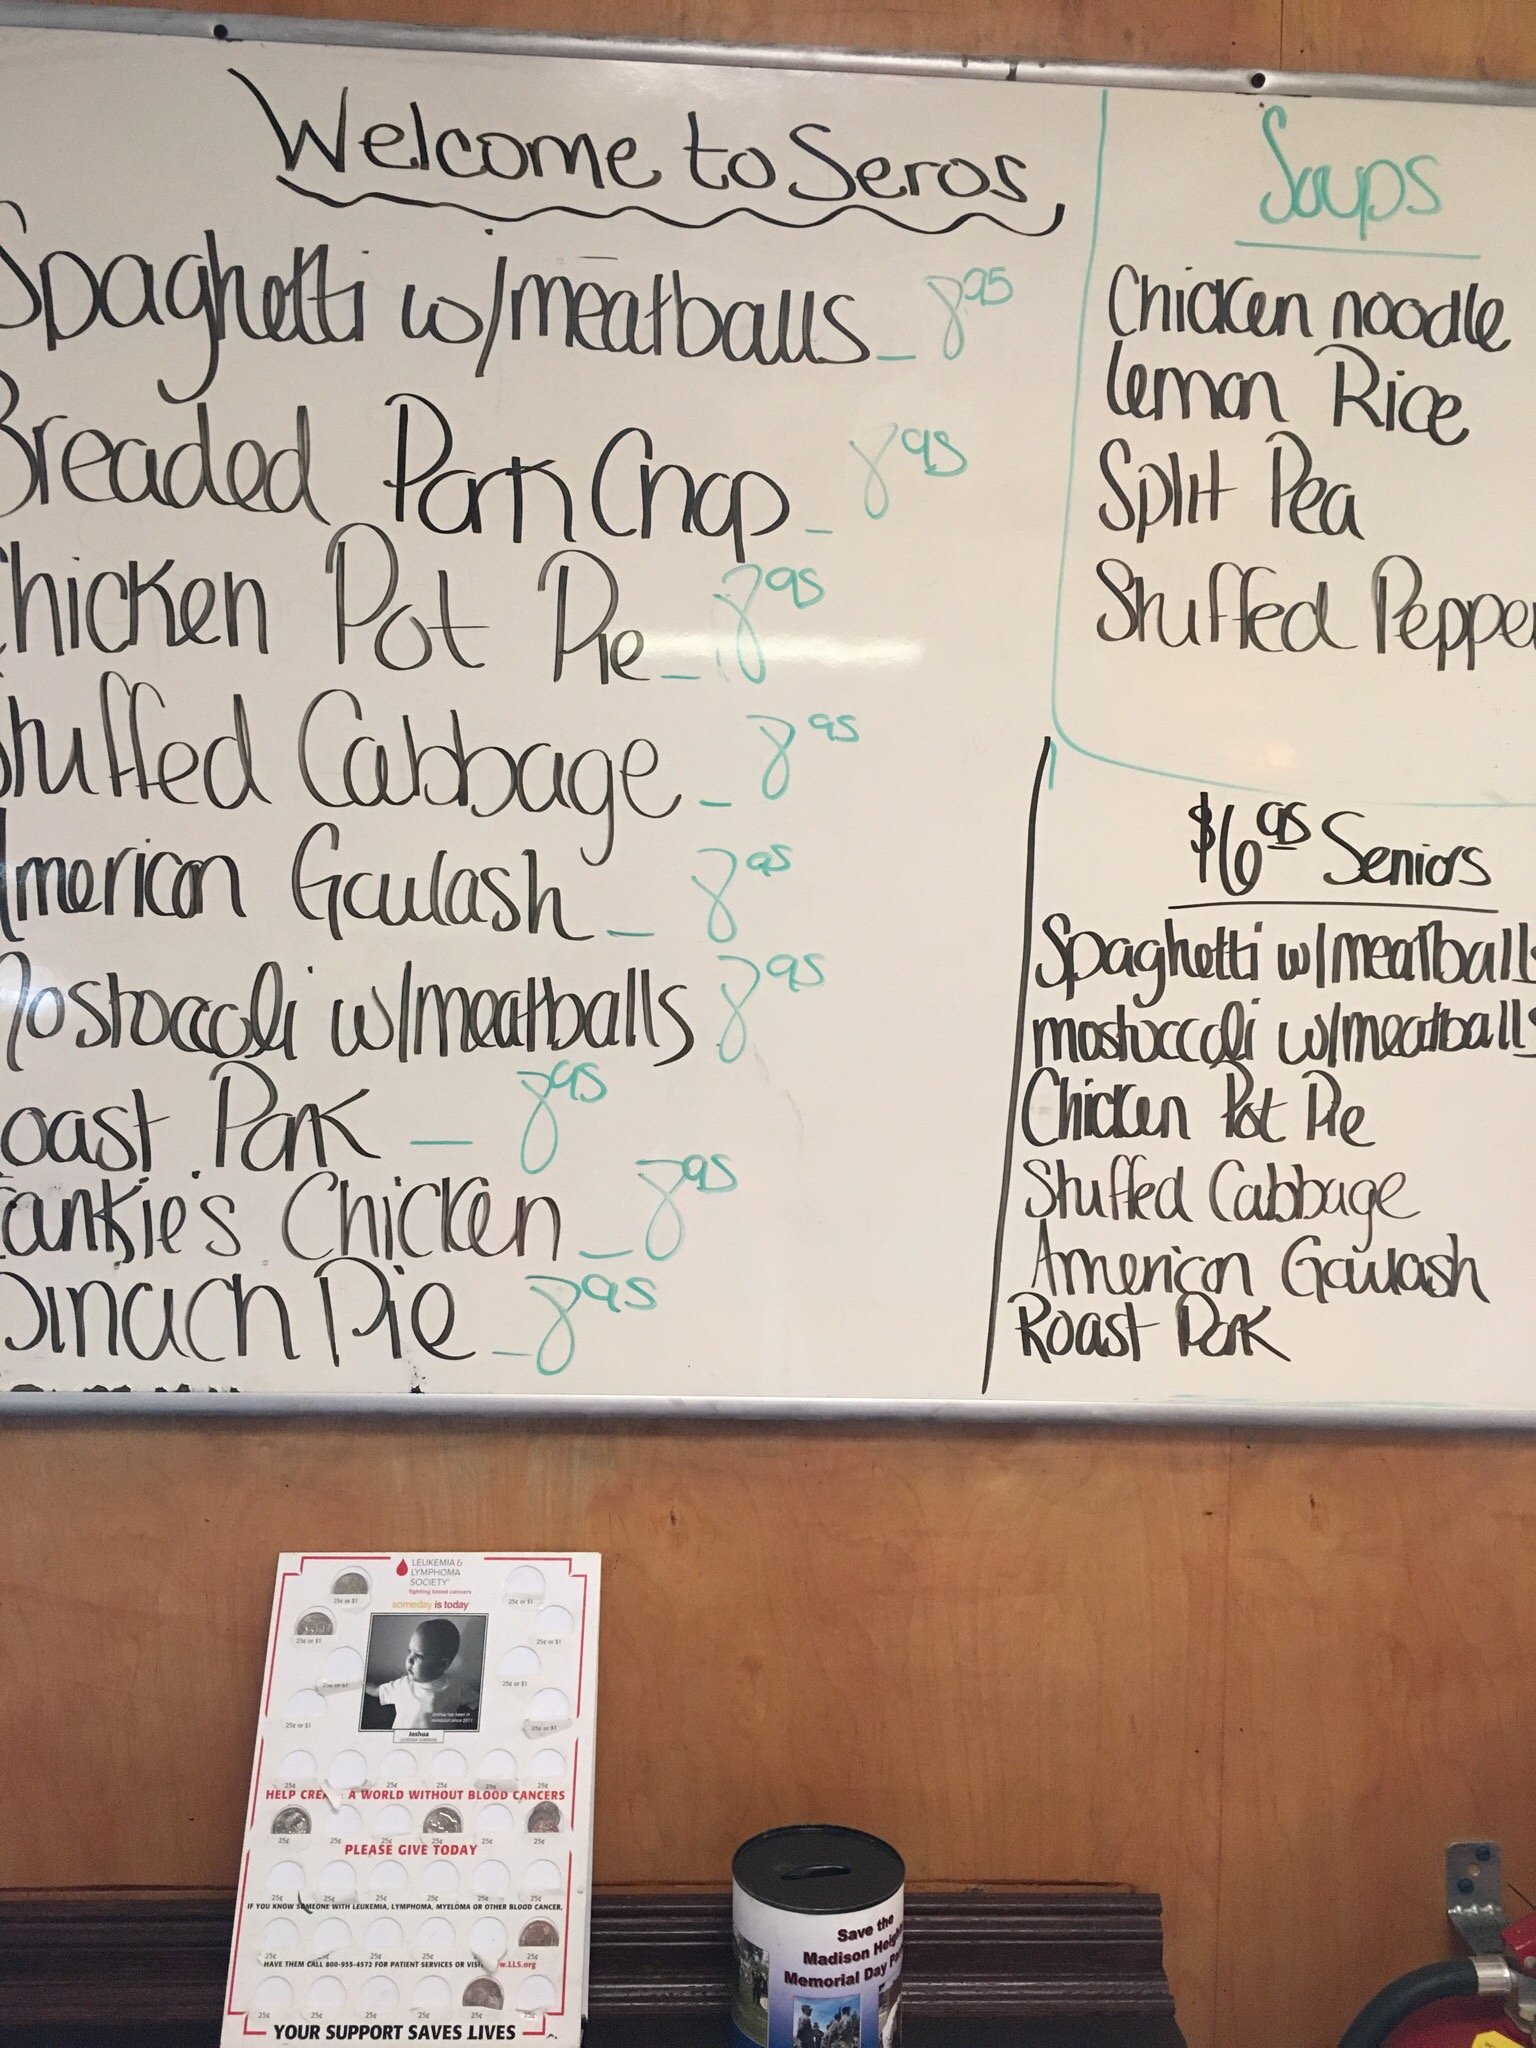 Welcome to Seros
Spaghetti w/meatballs - 8 95
Breaded Pork Chop - 8 95
Chicken Pot Pie - 8 95
Stuffed Cabbage - 8 95
American Goulash - 8 95
Mostoccoli w/meatballs 8 95
Roast Pork - 8 95
Frankie's Chicken - 8 95
Spinach Pie - 8 95
Soups
Chicken noodle
Lemon Rice
Split Pea
Stuffed Pepper
$6 95 Seniors
Spaghetti w/meatballs
mostoccoli w/meatballs
Chicken Pot Pie
Stuffed Cabbage
American Goulash
Roast Pork
LEUKEMIA &
LYMPHOMA
SOCIETY
fighting blood cancers
someday is today
25¢ or $1
25¢ or $1
25¢ or $1
25¢ or $1
25¢ or $1
25¢ or $1
25¢ or $1
25¢ or $1
Joshua has been in
remission since 2011.
Joshua
LEUKEMIA SURVIVOR
25¢ 25¢ 25¢ 25¢ 25¢
HELP CREA A WORLD WITHOUT BLOOD CANCERS
25¢ 25¢ 25¢ 25¢ 25¢ 25¢
PLEASE GIVE TODAY
25¢ 25¢ 25¢ 25¢ 25¢ 25¢
IF YOU KNOW SOMEONE WITH LEUKEMIA, LYMPHOMA, MYELOMA OR OTHER BLOOD CANCER,
25¢ 25¢ 25¢ 25¢ 25¢
HAVE THEM CALL 800-955-4572 FOR PATIENT SERVICES OR VISIT w.LLS.org
25¢ 25¢ 25¢ 25¢ 25¢ 25¢
YOUR SUPPORT SAVES LIVES
Save the
Madison Heigh
Memorial Day Pa